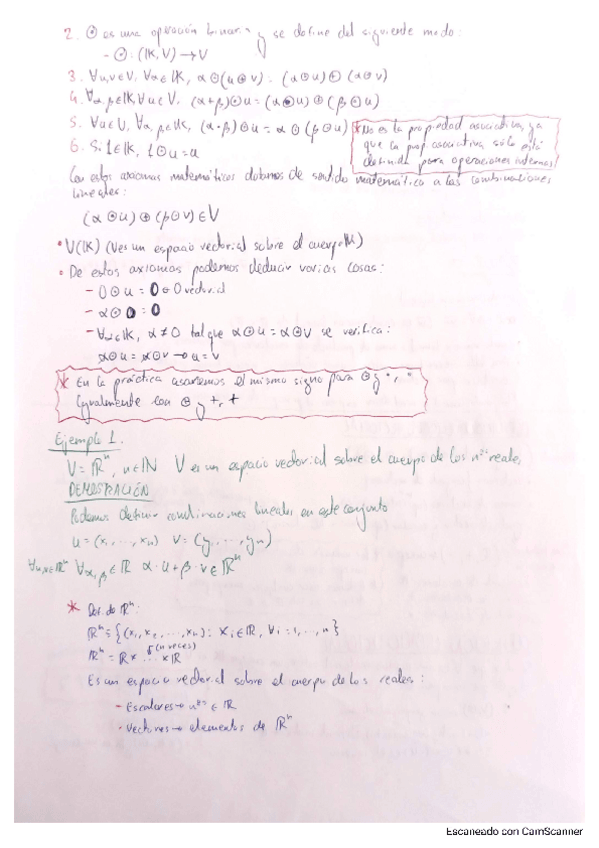 2. ⊙ es una operación binaria y se define del siguiente modo:
- ⊙: (IK, V) → V
3. ∀u,v∈V, ∀α∈IK, α⊙(u⊕v) = (α⊙u) ⊕ (α⊙v)
4. ∀α,β∈IK, ∀u∈V, (α+β)⊙u = (α⊙u) ⊕ (β⊙u)
5. ∀u∈V, ∀α,β∈IK, (α·β)⊙u = α⊙(β⊙u)
* No es la propiedad asociativa, ya
que la prop. asociativa sólo está
definida para operaciones internas
6. Si 1∈IK, 1⊙u = u
Con estos axiomas matemáticos dotamos de sentido matemático a las combinaciones
lineales:
(α⊙u) ⊕ (β⊙v) ∈ V
• V(IK) (V es un espacio vectorial sobre el cuerpo IK)
• De estos axiomas podemos deducir varias cosas:
- 0⊙u = 0 → 0 vectorial
- α⊙0 = 0
- ∀α∈IK, α≠0 tal que α⊙u = α⊙v se verifica:
α⊙u = α⊙v → u = v
* En la práctica usaremos el mismo signo para ⊙ y ·, ·
Igualmente con ⊕ y +, +
Ejemplo 1.
V = ℝⁿ, n∈ℕ V es un espacio vectorial sobre el cuerpo de los nºs reales
DEMOSTRACIÓN
Podemos definir combinaciones lineales en este conjunto
u = (x, ..., xn) v = (y, ..., yn)
∀u,v∈ℝⁿ ∀α,β∈ℝ α·u + β·v ∈ℝⁿ
ℝⁿ:
ℝⁿ = {(x₁, x₂, ..., xn): xi∈ℝ, ∀i = 1, ..., n}
ℝⁿ = ℝ × (n veces) ... × ℝ
Es un espacio vectorial sobre el cuerpo de los reales:
- Escalares → nºs ∈ ℝ
- Vectores → elementos de ℝⁿ
Escaneado con CamScanner